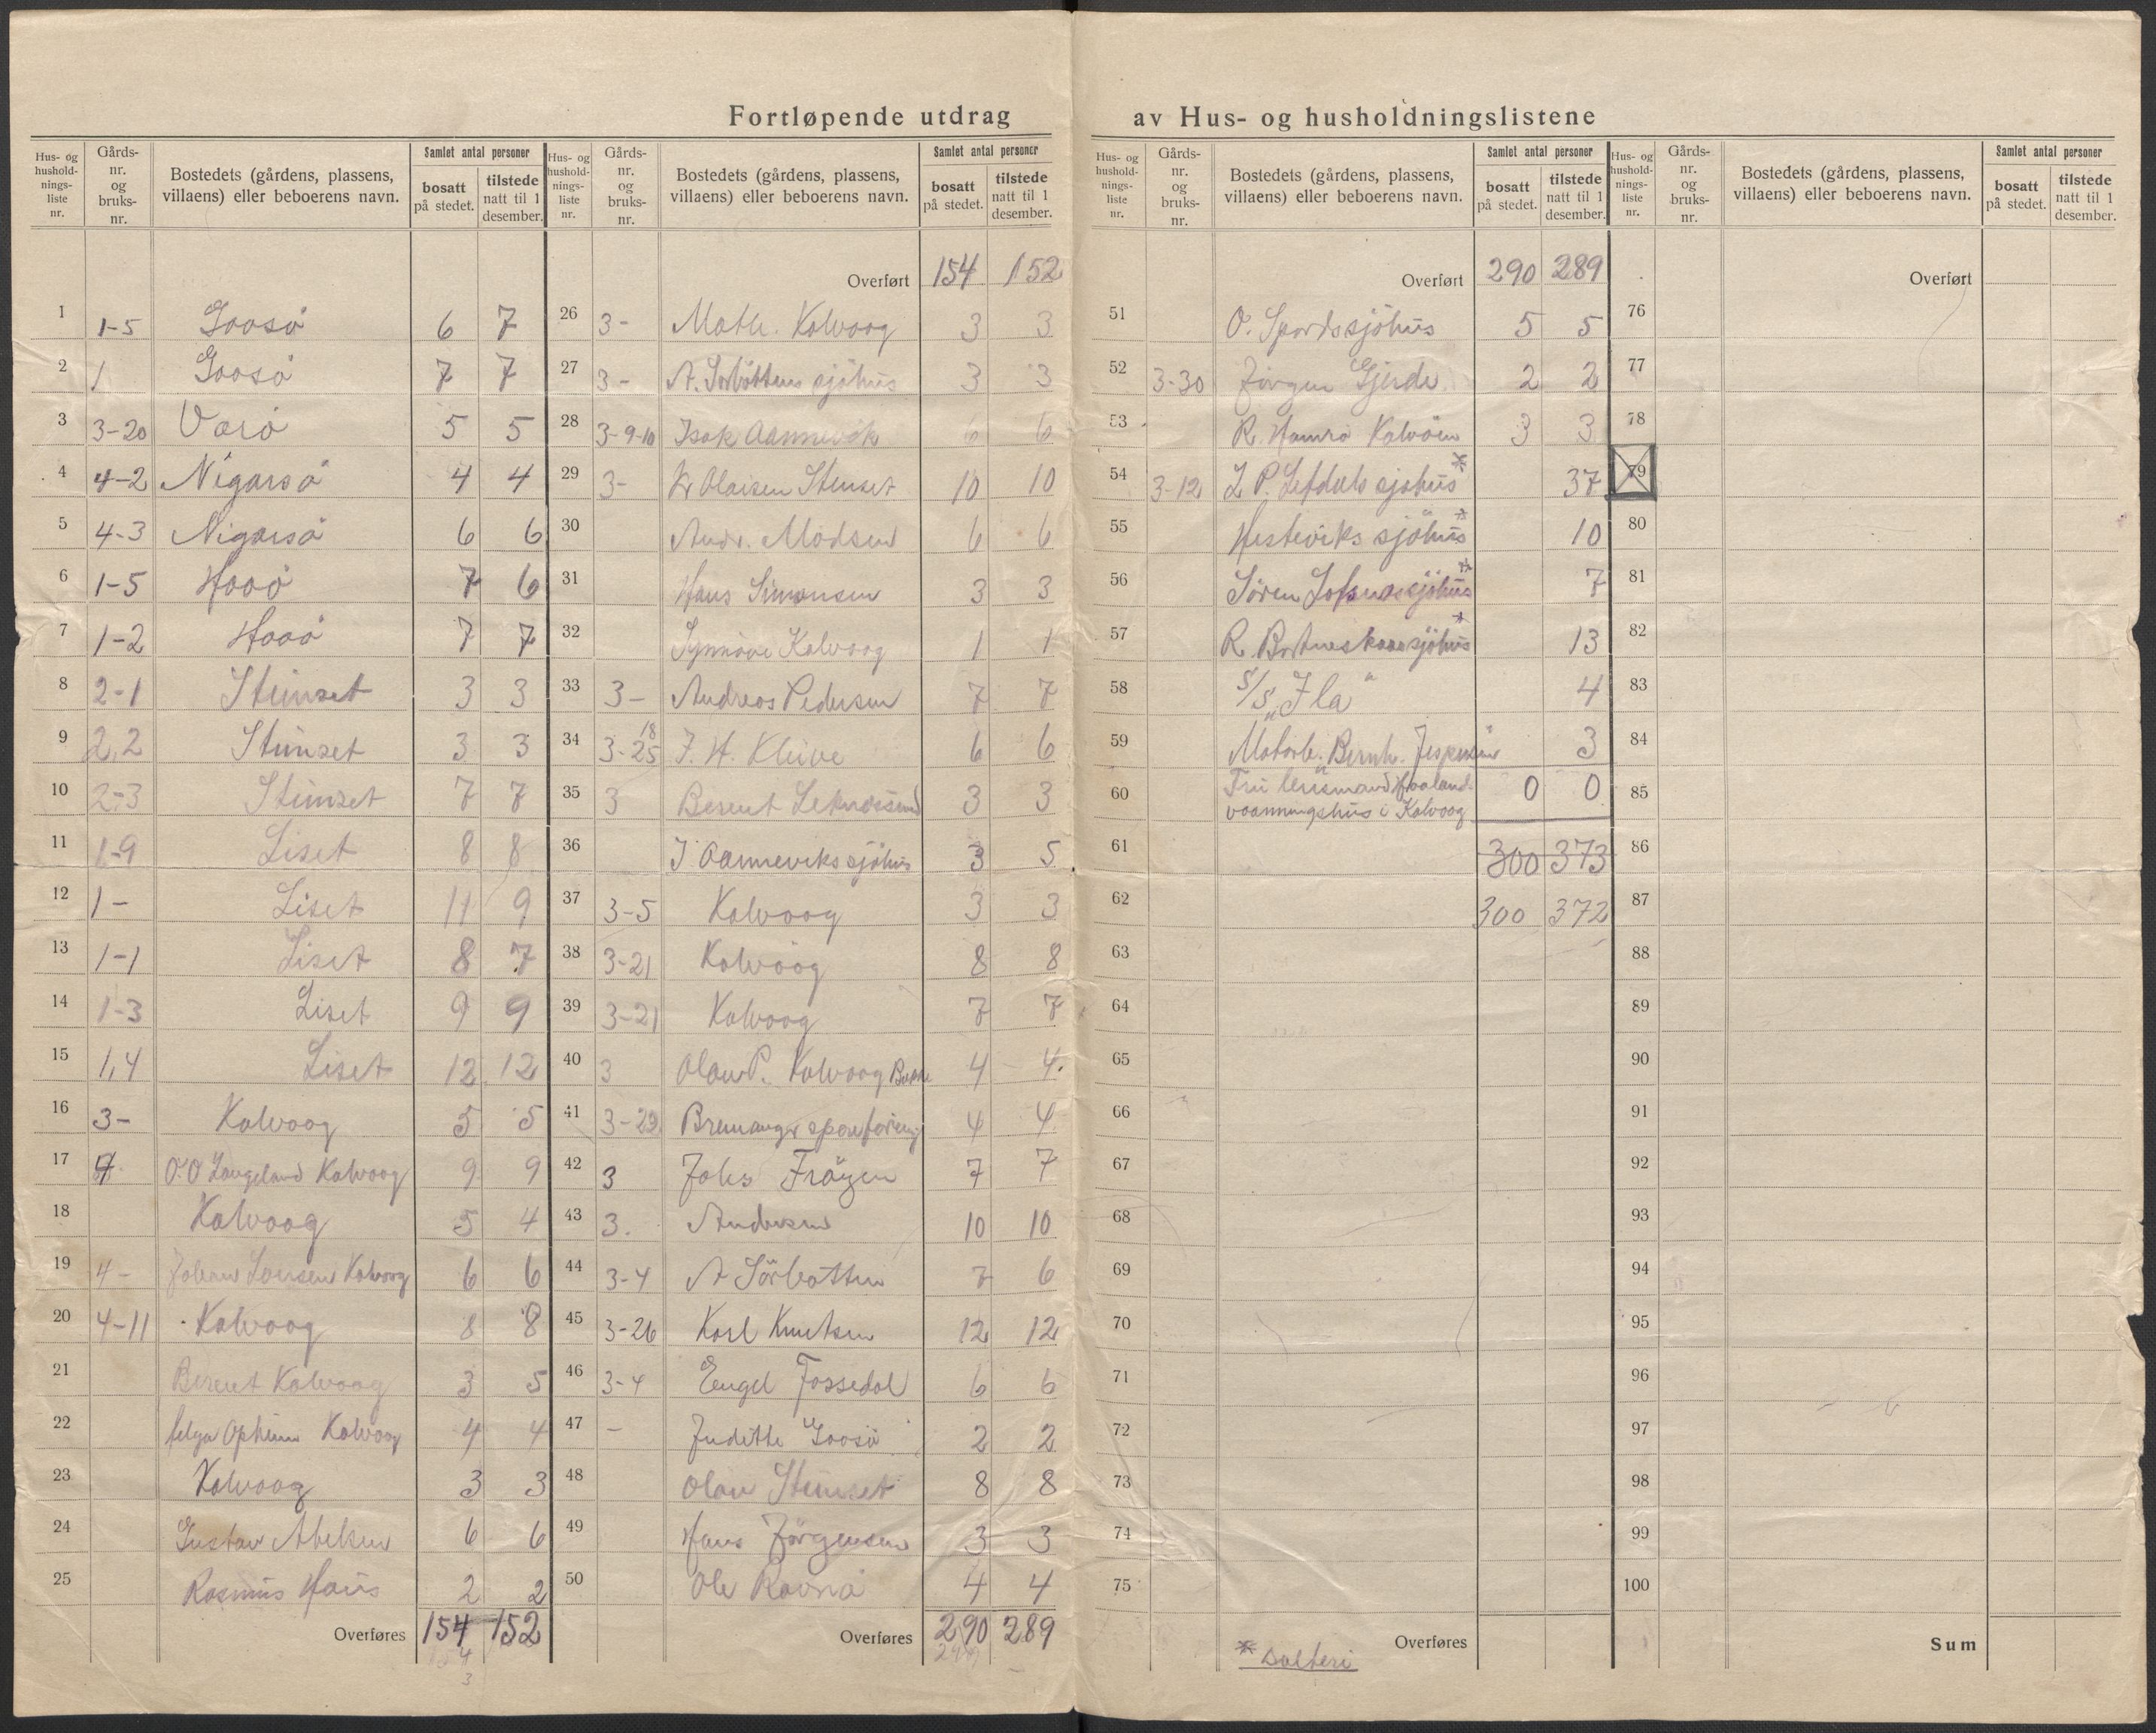 Fortløpende utdrag av Hus- og husholdningslistene
Hus- og hushold-nings-liste nr. Gårds-nr. og bruks-nr. Bostedets (gårdens, plassens, villaens) eller beboerens navn. Samlet antal personer bosatt på stedet. tilstede natt til 1 desember.
1 1-5 Goosö 6 7
2 1 Goosö 7 7
3 3-20 Varö 5 5
4 4-2 Nigarsö 4 4
5 4-3 Nigarsö 6 6
6 1-5 Haaö 7 6
7 1-2 Haaö 7 7
8 2-1 Steinset 3 3
9 2,2 Steinset 3 3
10 2-3 Steinset 7 7
11 1-9 Liset 8 8
12 1- Liset 11 9
13 1-1 Liset 8 7
14 1-3 Liset 9 9
15 1,4 Liset 12 12
16 3- Kalvaag 5 5
17 O.O Langeland Kalvaag 9 9
18 Kalvaag 5 4
19 4- Johan Larsen Kalvaag 6 6
20 4-11 Kalvaag 8 8
21 Berent Kalvaag 3 5
22 Helga Opheim Kalvaag 4 4
23 Kalvaag 3 3
24 Gustav Abelsen 6 6
25 Rasmus Haus 2 2
Overføres 154 152
Hus- og hushold-nings-liste nr. Gårds-nr. og bruks-nr. Bostedets (gårdens, plassens, villaens) eller beboerens navn. Samlet antal personer bosatt på stedet. tilstede natt til 1 desember.
Overført 154 152
26 3- Math. Kalvaag 3 3
27 3- A. Sørbøttens sjøhus 3 3
28 3-9-10 Isak Aannevik 6 6
29 3- Olaisen Steinset 10 10
30 Andr. Madsen 6 6
31 Hans Simonsen 3 3
32 Synnöve Kalvaag 1 1
33 3- Andreas Pedersen 7 7
34 3-25 18 J. H. Kleive 6 6
35 3 Berent Leknessund 3 3
36 I Aanneviks sjöhus 3 5
37 3-5 Kalvaag 3 3
38 3-21 Kalvaag 8 8
39 3-21 Kalvaag 7 7
40 3 Olav P. Kalvaag 4 4
41 3-29 Bremanger sparforening 4 4
42 3 Johs Fröyen 7 7
43 3. Andersen 10 10
44 3-4 A Sörbotten 7 6
45 3-26 Karl Knutsen 12 12
46 3-4 Engel Fossedal 6 6
47 - Judithe Goosö 2 2
48 Olav Steinset 8 8
49 Hans Jörgensen 3 3
50 Ole Ravnö 4 4
Overføres 290 289
Hus- og hushold-nings-liste nr. Gårds-nr. og bruks-nr. Bostedets (gårdens, plassens, villaens) eller beboerens navn. Samlet antal personer bosatt på stedet. tilstede natt til 1 desember.
Overført 290 289
51 O. Spords sjöhus 5 5
52 3-30 Jörgen Gjerde 2 2
53 R. Hamrö Kalvöen 3 3
54 3-12 L P. Lefdals sjøhus * 37
55 Hesteviks sjöhus * 10
56 Sören sjöhus * 7
57 R. Botneskaa sjöhus * 13
58 S/S „Ila" 4
59 Motorb. „Bernh. Jespersen" 3
60 Fru lensmand Haaland- vaanningshus i Kalvaag 0 0
61 300 373
62 300 372
63
64
65
66
67
68
69
70
71
72
73
74
75
Overføres
* Salteri
Hus- og hushold-nings-liste nr. Gårds-nr. og bruks-nr. Bostedets (gårdens, plassens, villaens) eller beboerens navn. Samlet antal personer bosatt på stedet. tilstede natt til 1 desember.
Overført
76
77
78
79
80
81
82
83
84
85
86
87
88
89
90
91
92
93
94
95
96
97
98
99
100
Sum